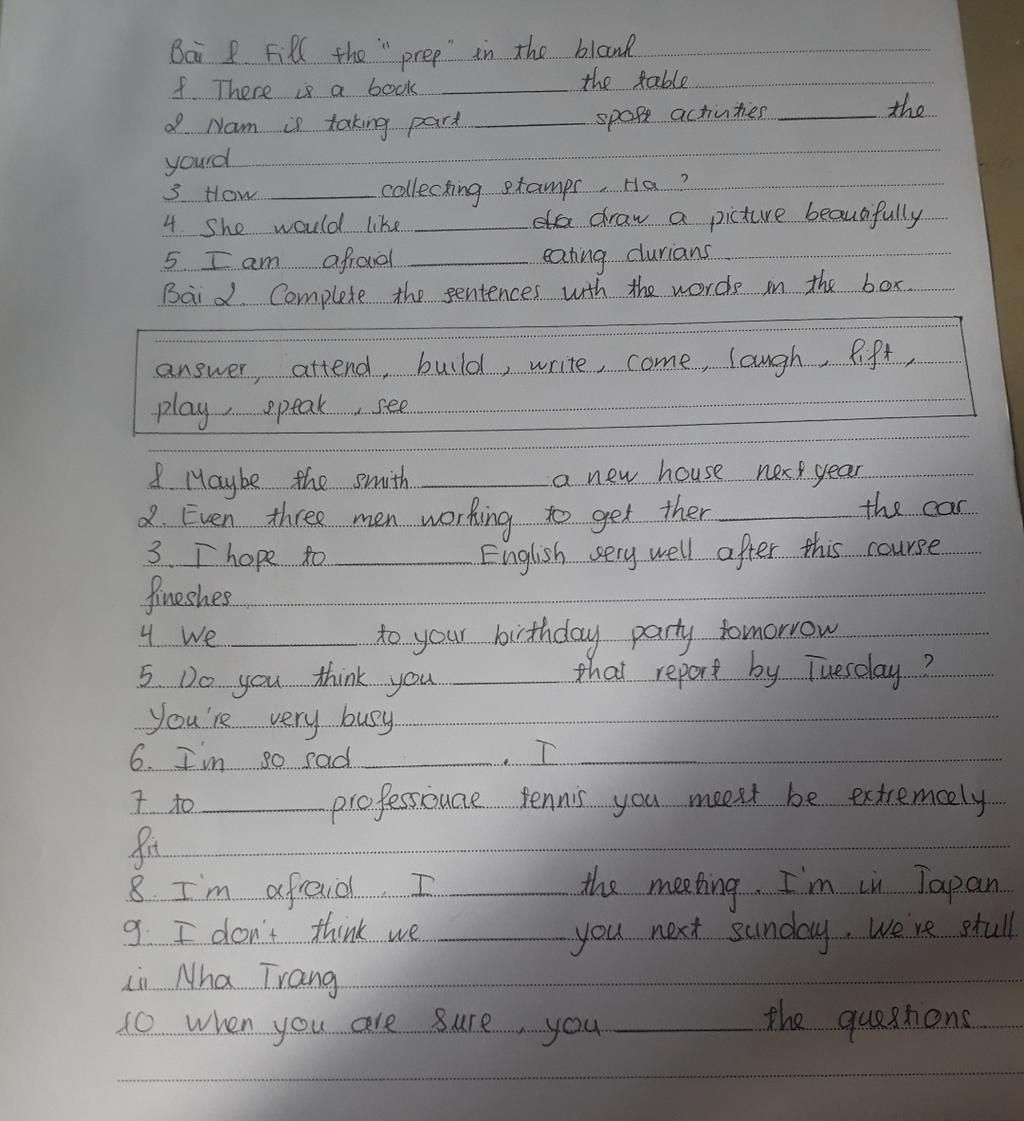 Bài 1 Fill the "prep" in the blank
1. There is a book ________ the table
2 Nam is taking part ________ sport activities ________ the
yourd
3 How ________ collecting stamps, Ha ?
4. She would like ________ draw a picture beautifully
5 I am afraid ________ eating durians
Bài 2. Complete the sentences with the words in the box.
answer, attend, build, write, come, laugh, lift,
play, speak, see
1 Maybe the smith ________ a new house next year
2. Even three men working to get ther ________ the car
3. I hope to ________ English very well after this course
fineshes
4 We ________ to your birthday party tomorrow
5. Do you think you ________ that report by Tuesday ?
You're very busy
6. I'm so sad ________. I ________
7 to ________ professionae tennis you meest be extremcely
fit
8. I'm afraid. I ________ the meeting. I'm in Japan
9. I don't think we ________ you next sunday. We're stull
in Nha Trang
10 when you are sure, you ________ the questions